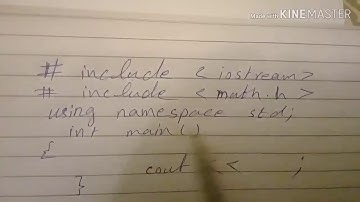 Made with KINEMASTER
# include < iostream>
# include < math.h >
using namespace std;
int main()
{
cout < ;
}